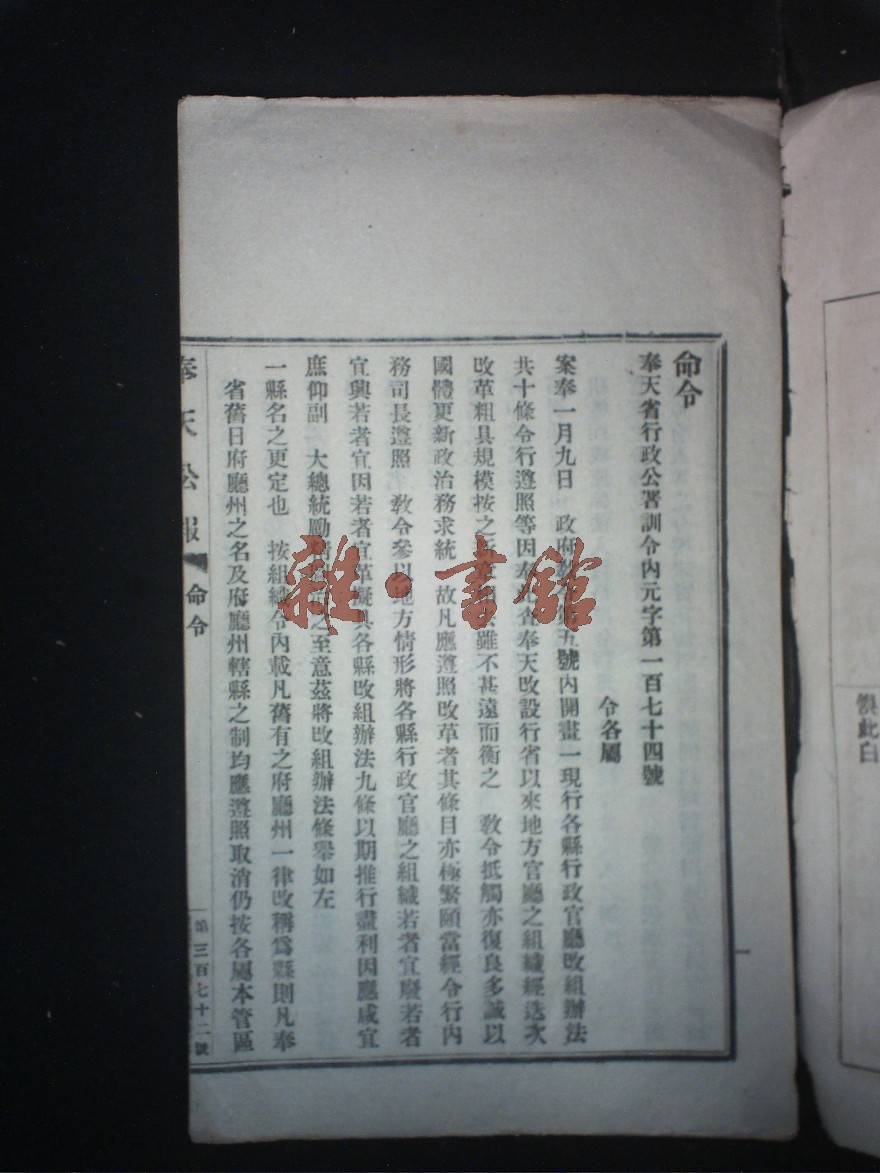 命令
奉天省行政公署訓令內元字第一百七十四號
令各屬
案奉一月九日 政府 五號內開畫一現行各縣行政官廳改組辦法
共十條令行遵照等因奉 查奉天改設行省以來地方官廳之組織經迭次
改革粗具規模按之 雖不甚遠而衡之 敎令抵觸亦復良多誠以
國體更新政治務求統 故凡應遵照改革者其條目亦極繁頤當經令行內
務司長遵照 敎令參以地方情形將各縣行政官廳之組織若者宜廢若者
宜興若者宜因若者宜革擬具各縣改組辦法九條以期推行盡利因應咸宜
庶仰副 大總統勵精 之至意茲將改組辦法條舉如左
一縣名之更定也 按組織令內載凡舊有之府廳州一律改稱爲縣則凡奉
省舊日府廳州之名及府廳州轄縣之制均應遵照取消仍按各屬本管區
奉天公報 命令
第三百七十二號
一
雜·書館
此白